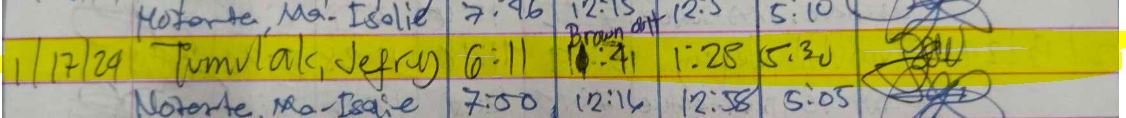 Notarte, Ma-Isalie 7:46 12:15 12:5 5:10
Brown out
1/17/24 Tumulak, Jefrey 6:11 :41 1:28 5:30
Notarte, Ma-Isalie 7:50 12:16 12:58 5:05